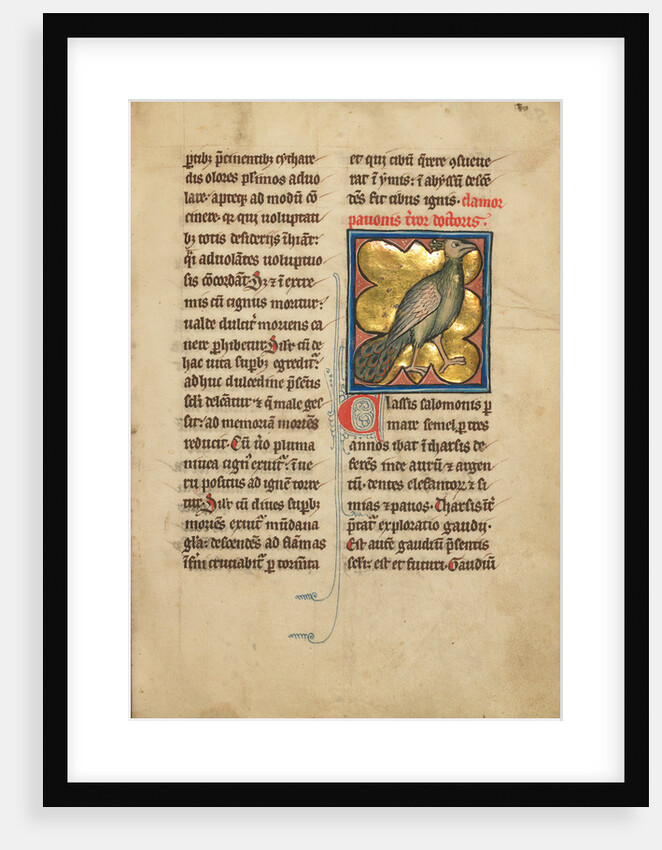 ꝑtibꝫ ꝑtinentibꝫ cythare
dis olores plimos aduo
lare· apteqꝫ ad modū cō
cinere· qꝛ qui uoluptati
bꝫ totis desiderijs īhiāt:
qͥ aduolātes uoluptuo
sis cōcordāt· ⁊ ī extre
mis cū cignus moritur:
ualde dulcit͛ moriens ca
nere ꝓhibetur· Silr̄ cū de
hac uita suꝑbꝫ egredit᷑:
adhuc dulcedine p̄sētis
sclī delc̄tantur ⁊ q̄ male ges
ser̄: ad memoriā moriēs
reducit· Cū u͛o pluma
niuea cign͛ exuit᷑: ī ue
ru positus ad ignē torre
tur· Silr̄ cū diues suꝑbꝫ
moriēs exuit᷑ mūdana
glā: descendēs ad flāmas
īfn̄i cruciabit᷑ ꝑ tormēta
et qui cibū q̄rere ↄsueue
rat ī ymis: ī abyssū descē
dēs fit cibus ignis· clamor
pauonis t͛ror doctoris·
Classis salomonis ꝑ
mare semel ꝑ tres
annos ibat ī tharsis de
ferēs inde aurū ⁊ argen
tū· dentes elefantor̄ ⁊ si
mias ⁊ pauos· Tharsis īt͛
p̄tat᷑ exploratio gaudij·
Est aut̄ gaudiū p̄sentis
sclī: est et futuri· Gaudiū